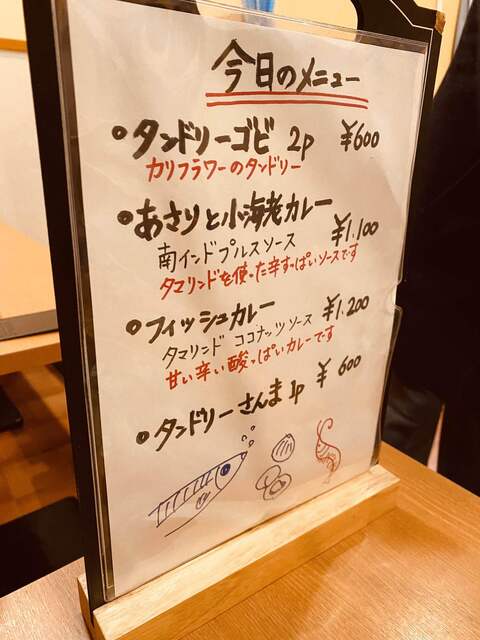 今日のメニュー
・タンドリーゴビ 2p ¥600
カリフラワーのタンドリー
・あさりと小海老カレー
南インドプルスソース ¥1.100
タマリンドを使った辛すっぱいソースです
・フィッシュカレー ¥1.200
タマリンド ココナッツソース
甘い辛い酸っぱいカレーです
・タンドリーさんま 1p ¥600